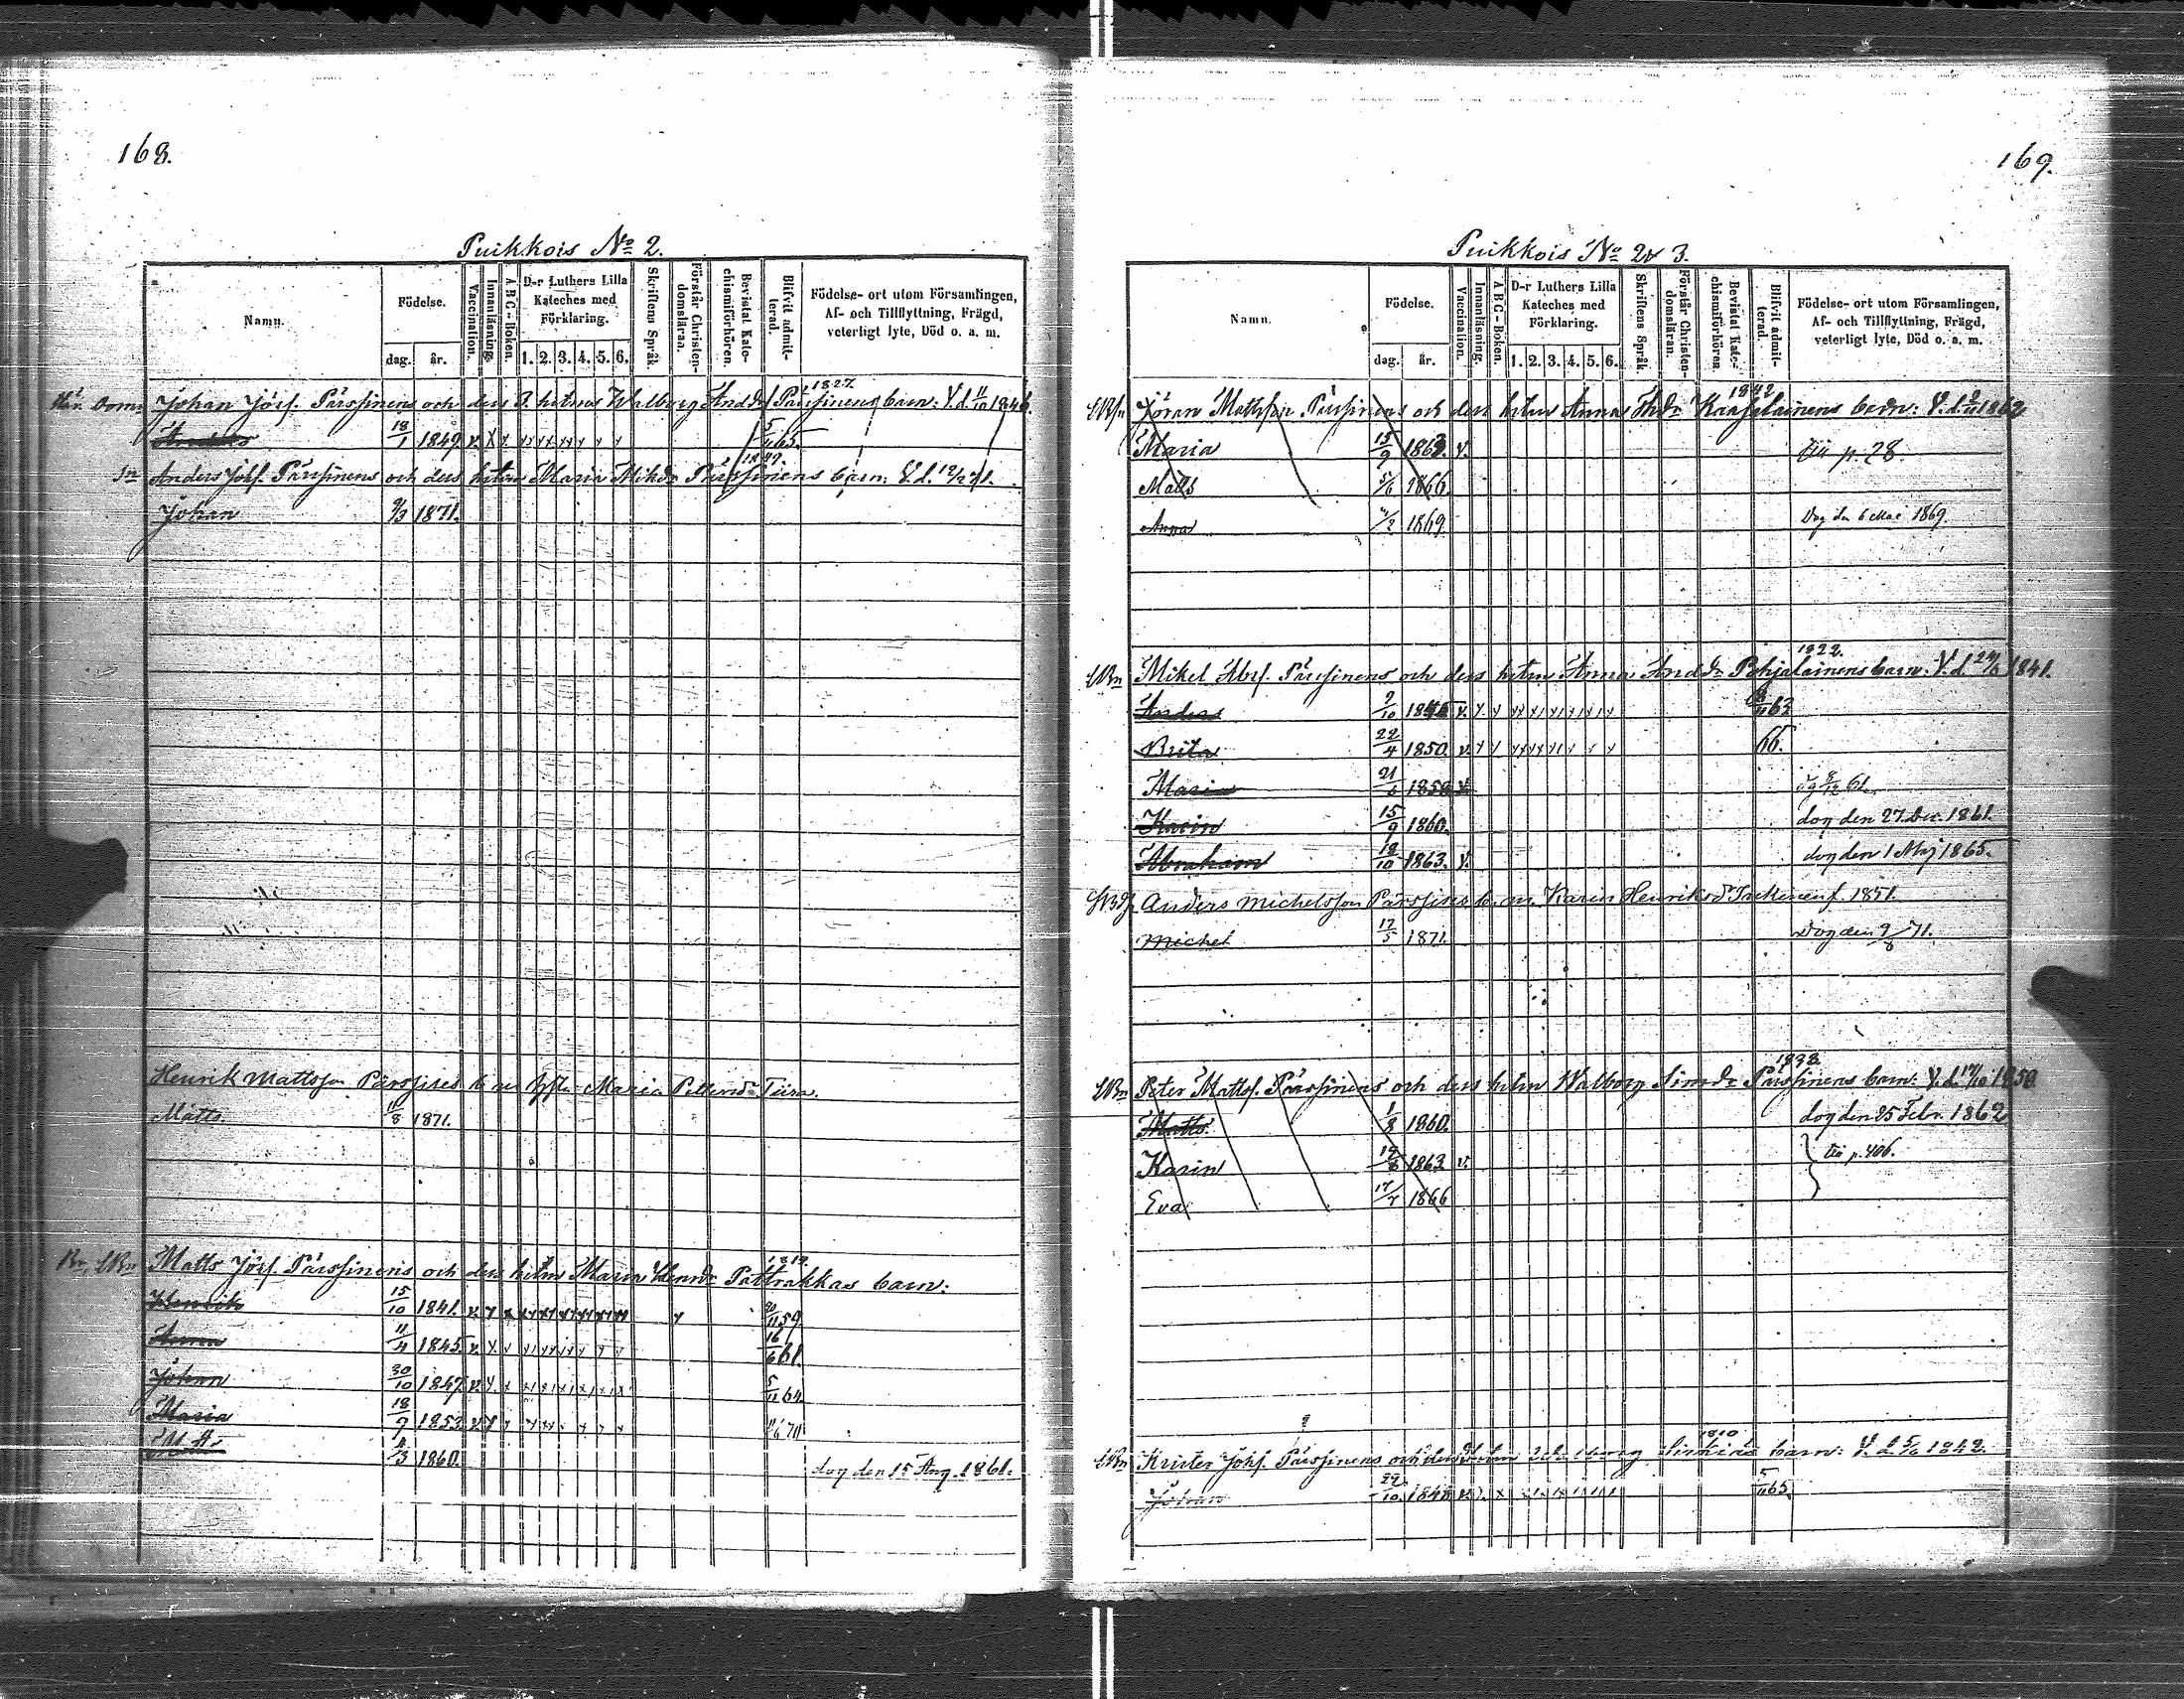 168.
Puikkois No 2.
Namn.
Födelse.
dag.
år.
Vaccination.
Innanläsning.
ABC-Boken.
D-r Luthers Lilla Kateches med Förklaring.
1. 2. 3. 4. 5. 6.
Skriftens Språk.
Förstår Christendomsläran.
Bevistat Katechismiförhören.
Blifvit admitterad.
Födelse- ort utom Församlingen,
Af- och Tillflyttning, Frägd,
veterligt lyte, Död o. a. m.
1827.
Johan Jörs. Pärssinens och dess hstrus Walborg Andd. Pärssinens barn: V. d. 11/10 1846.
Anders 18/1 1849 v. x x 5/11 65.
1849.
Sn Anders Johs. Pärssinens och dess hstru Maria Mikdr Pärssinens barn: V. d. 12/2 71.
Johan 9/3 1871.
Henrik Mattsson Pärssises b. a. Hstr Maria Pettersdr Tiira
Matts. 11/8 1871.
1819.
Matts Jörs. Pärssinens och dess hstru Maria Henrdr Pattrakkas barn:
Henrik 15/10 1841. 20/11 59
Anna 11/4 1845 v. 16/6 61.
Johan 30/10 1847 v. 5/11 64.
Maria 18/9 1853 v. 70
Matts 4/3 1860. dog den 15 Aug. 1861.
169.
Puikkois No 2 & 3.
Namn.
Födelse.
dag.
år.
Vaccination.
Innanläsning.
ABC-Boken.
D-r Luthers Lilla Kateches med Förklaring.
1. 2. 3. 4. 5. 6.
Skriftens Språk.
Förstår Christendomsläran.
Bevistat Katechismiförhören.
Blifvit admitterad.
Födelse- ort utom Församlingen,
Af- och Tillflyttning, Frägd,
veterligt lyte, Död o. a. m.
1842.
Jöran Mattsson Pärssinens och dess hstru Anna Thdr Kaasalainens barn: V. d. 2/11 1862
Maria 15/9 1863. v. p. 28.
Matts 5/6 1866.
Anna 4/2 1869. Dog den 6 Mac 1869.
1822.
Mikel Abrs. Pärssinens och dess hstru Anna Anddr Pohjalainens barn: V. d. 24/6 1841.
Anders 9/10 1845 v. 63
Brita 22/4 1850 v. 66.
Maria 21/6 1858 v. 61.
Karin 15/9 1860. dog den 27. Dec. 1861.
Abraham 18/10 1863. v. dog den 1 Maj 1865.
Anders Michelsson Pärssises b. a. Karin Henriksdr f. 1851.
Michel 17/5 1871. Dog den 9/8 71.
1838.
Peter Matts. Pärssinens och dess hstru Walborg Simdr Pärssinens barn: V. d. 17/10 1858
Matts. 1/8 1860. dog den 25 Febr. 1862
Karin 19/8 1863 v. p. 406.
Eva 17/7 1866
1810
Krister Johs. Pärssinens och dess barn: V. d. 5/6 1842.
Johan 22/10 1848 v. 5/11 65.